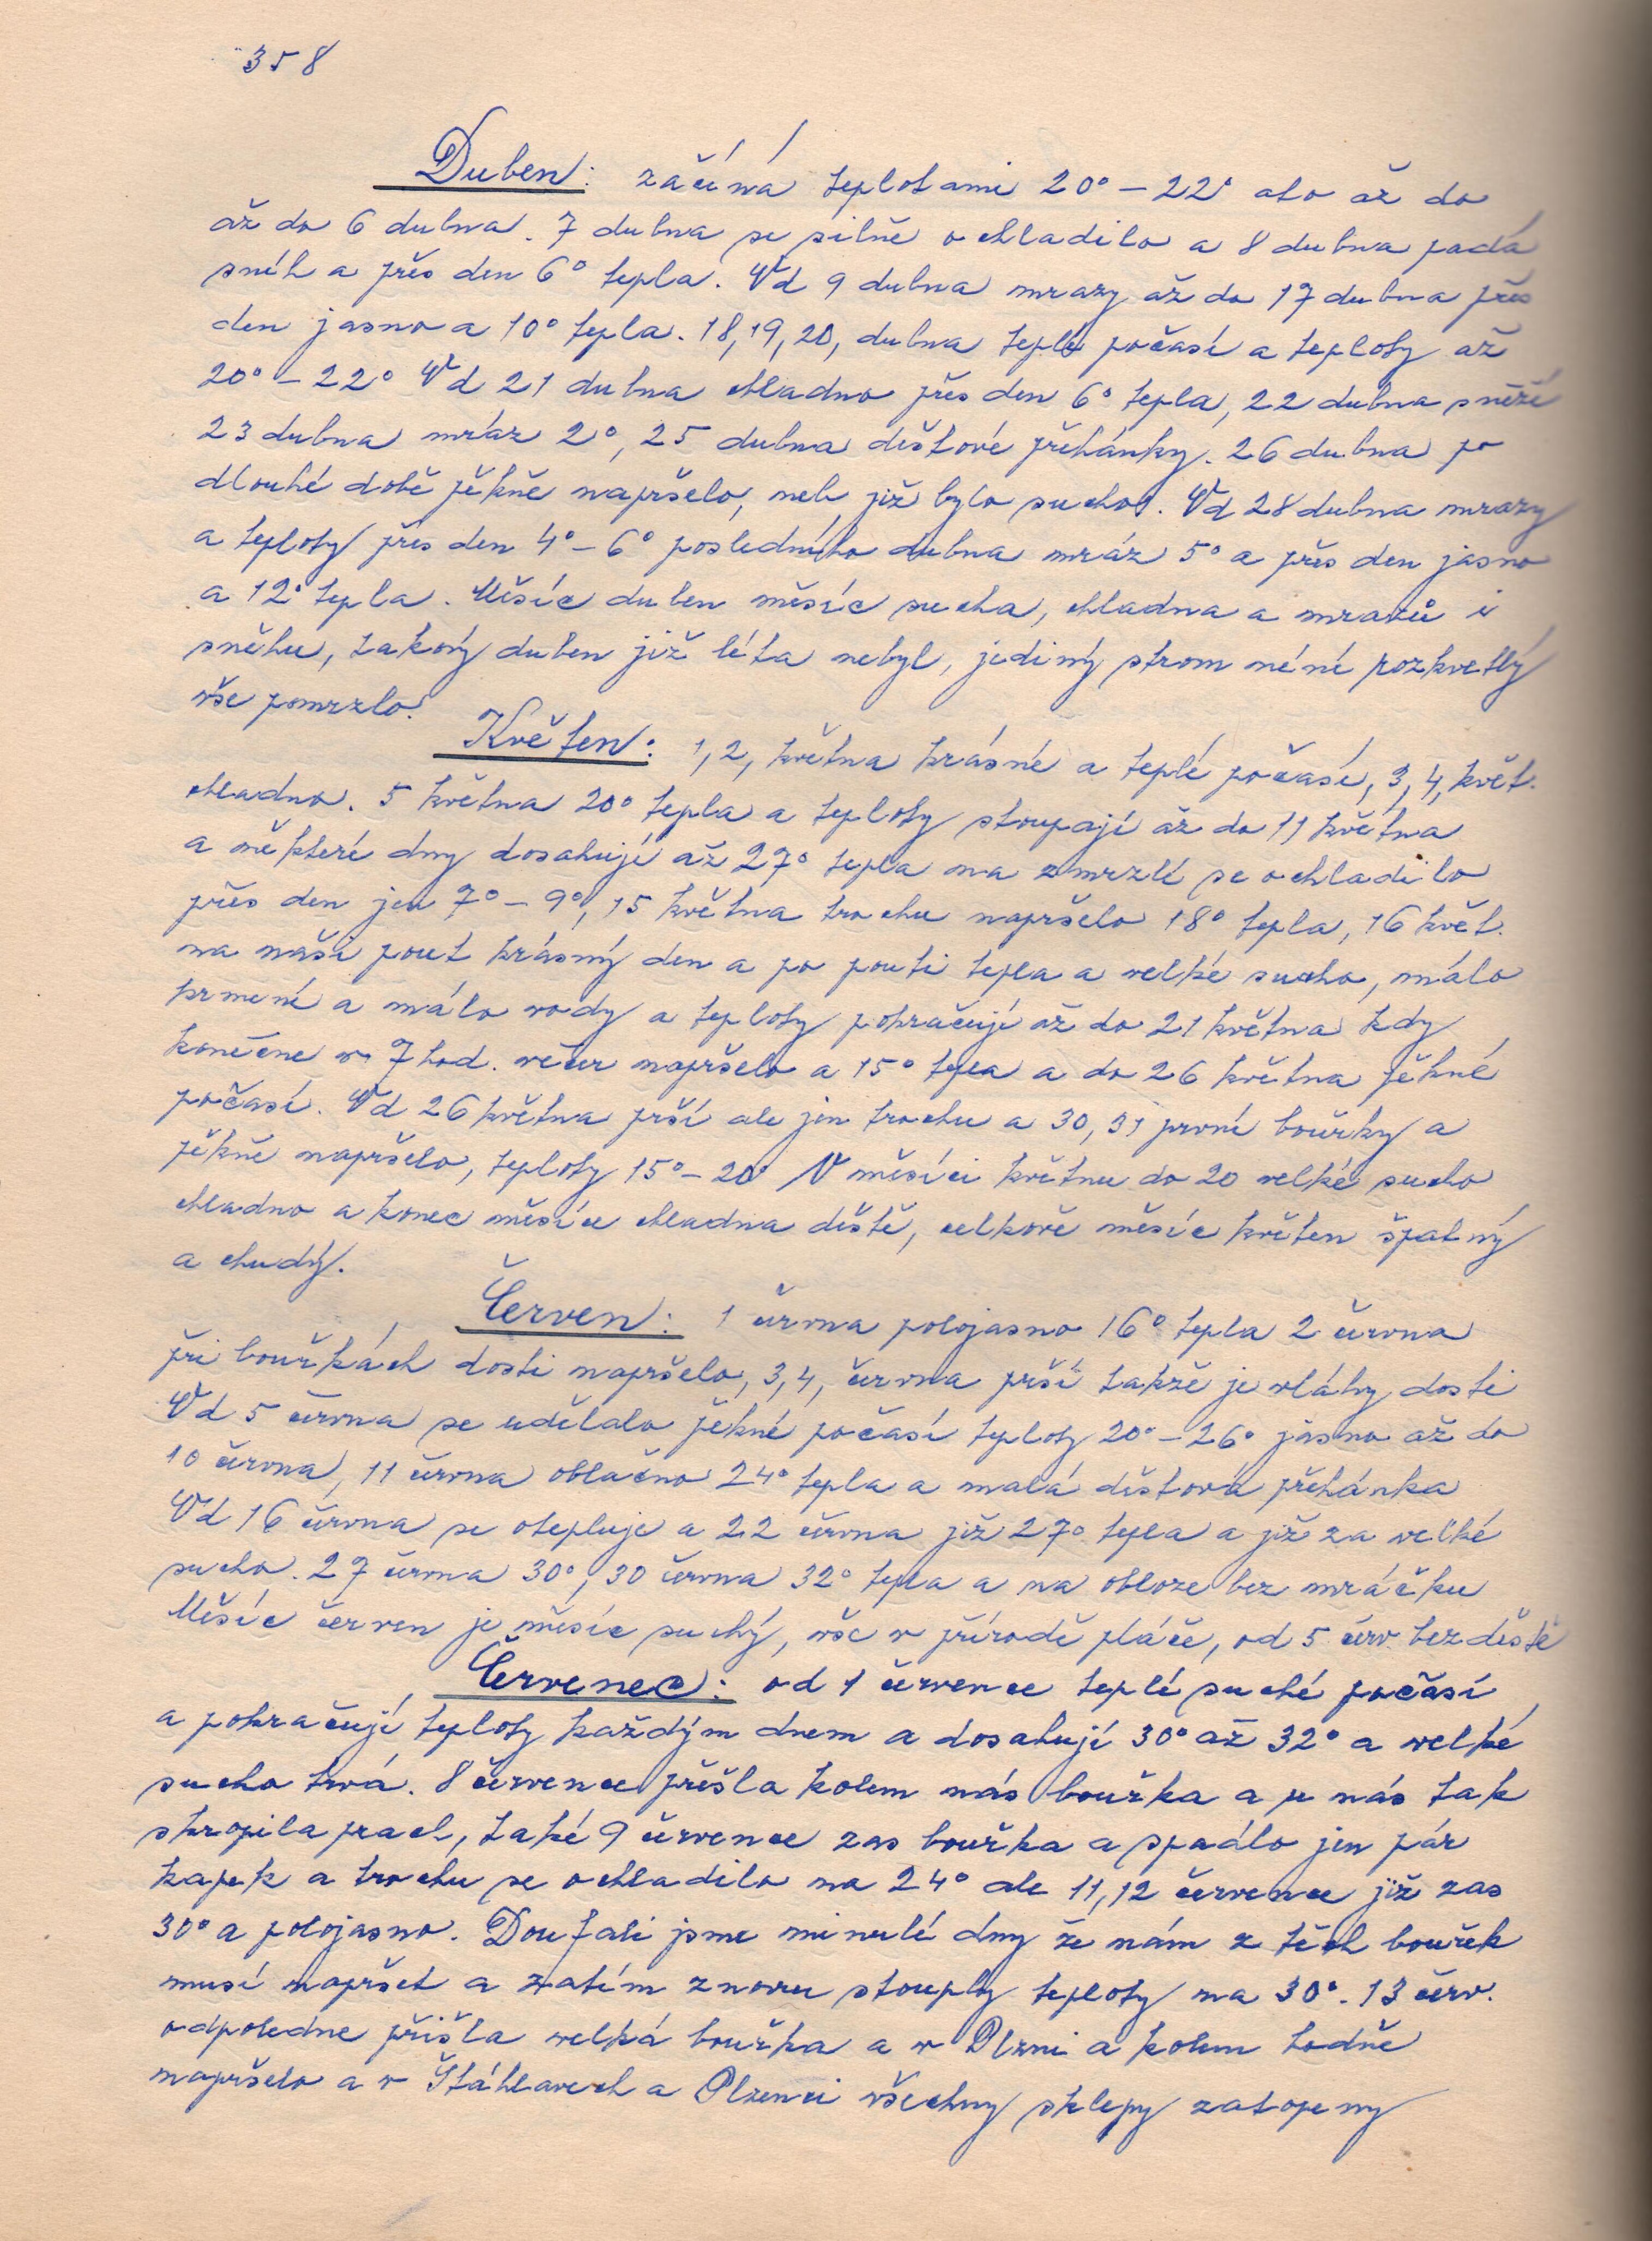 358
Duben: začíná teplotami 20° – 22° ato až do
až do 6 dubna. 7 dubna se silně ochladilo a 8 dubna padá
sníh a přes den 6° tepla. Od 9 dubna mrazy až do 17 dubna přes
den jasno a 10° tepla. 18, 19, 20, dubna teplé počasí a teploty až
20° – 22° Od 21 dubna chladno přes den 6° tepla, 22 dubna sněží
23 dubna mráz 2°, 25 dubna dešťové přehánky. 26 dubna po
dlouhé době pěkně napršelo, neb již bylo sucho. Od 28 dubna mrazy
a teploty přes den 4° – 6° posledního dubna mráz 5° a přes den jasno
a 12° tepla. Měsíc duben měsíc sucha, chladna a mrazů i
sněhu, takový duben již léta nebyl, jediný strom néné rozkvetlý
vše pomrzlo.
Květen: 1, 2, května krásné a teplé počasí, 3, 4, květ.
chladno. 5 května 20° tepla a teploty stoupají až do 11 května
a některé dny dosahují až 27° tepla na zmrzlé se ochladilo
přes den jen 7° – 9°, 15 května trochu napršelo 18° tepla, 16 květ.
na naši pouť krásný den a po pouti tepla a velké sucho, málo
krmení a málo vody a teploty pokračují až do 21 května kdy
konečne v 7 hod. večer napršelo a 15° tepla a do 26 května pěkné
počasí. Od 26 května prší ale jen trochu a 30, 31 první bouřky a
pěkně napršelo, teploty 15° – 20° V měsíci květnu do 20 velké sucho
chladno a konec měsíce chladna deště, celkově měsíc květen špatný
a chudý.
Červen: 1 června polojasno 16° tepla 2 června
při bouřkách dosti napršelo, 3, 4, června prší takže je vláhy dosti
Od 5 června se udělalo pěkné počasí teploty 20° – 26° jasno až do
10 června, 11 června oblačno 24° tepla a malá dešťová přehánka
Od 16 června se otepluje a 22 června již 27° tepla a již za velké
sucho. 27 června 30°, 30 června 32° tepla a na obloze bez mráčku
Měsíc červen je měsíc suchý, vše v přírodě pláče, od 5 červ. bez deště
Červenec: od 1 července teplé suché počasí
a pokračují teploty každým dnem a dosahují 30° až 32° a velké
sucho trvá. 8 července přešla kolem nás bouřka a u nás tak
skropila prach, také 9 července zas bouřka a spadlo jen pár
kapek a trochu se ochladilo na 24° ale 11, 12 července již zas
30° a polojasno. Doufali jsme minulé dny že nám z těch bouřek
musí napršet a zatím znovu stouply teploty na 30°. 13 červ.
odpoledne přišla velká bouřka a v Plzni a kolem hodně
napršelo a v Šťáhlavech a Plzenci všechny sklepy zatopeny